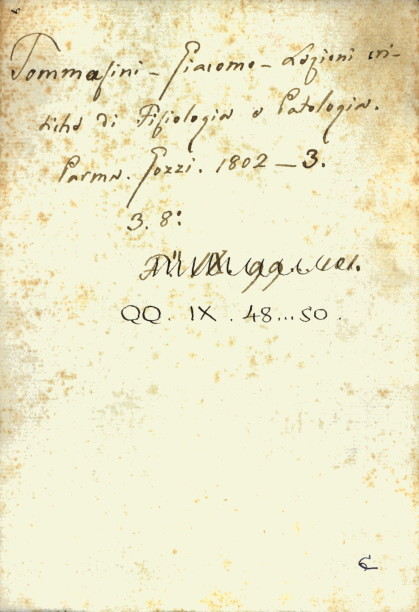 Tommasini - Giacomo - Lezioni cri-
tiche di Fisiologia e Patologia.
Parma. Gozzi. 1802 - 3.
3. 8:
QQ. IX. 48...50.